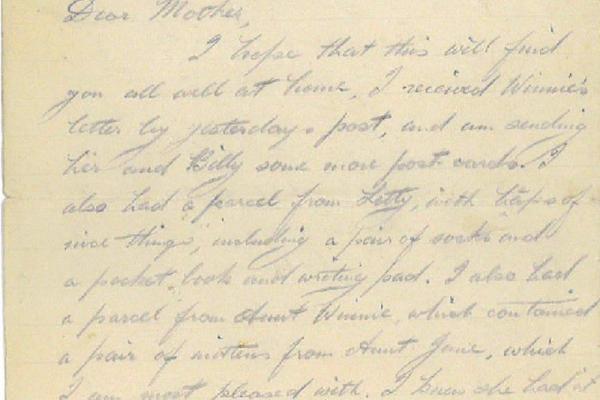 Dear Mother,
I hope that this will find
you all well at home, I received Winnie's
letter by yesterdays post, and am sending
her and Billy some more post cards. I
also had a parcel from Letty, with heaps of
nice things, including a pair of socks and
a pocket book and writing pad. I also had
a parcel from Aunt Winnie, which contained
a pair of mittens from Aunt Jane, which
I am most pleased with. I knew she had it